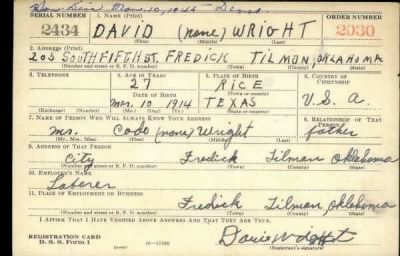 SERIAL NUMBER 1. NAME (Print) ORDER NUMBER
2434 DAVID (none) WRIGHT 2030
(First) (Middle) (Last)
2. ADDRESS (Print)
203 SOUTH FIFTH ST. FREDICK TILMON, OKLAHOMA
(Number and street or R. F. D. number) (Town) (County) (State)
3. TELEPHONE 4. AGE IN YEARS 5. PLACE OF BIRTH 6. COUNTRY OF CITIZENSHIP
27 RICE
DATE OF BIRTH (Town or county)
Mar. 10 1914 TEXAS U.S.A.
(Exchange) (Number) (Mo.) (Day) (Yr.) (State or country)
7. NAME OF PERSON WHO WILL ALWAYS KNOW YOUR ADDRESS 8. RELATIONSHIP OF THAT PERSON
(none) Wright father
(Mr., Mrs., Miss) (First) (Middle) (Last)
9. ADDRESS OF THAT PERSON
City Fredick Tilman Oklahoma
(Number and street or R. F. D. number) (Town) (County) (State)
10. EMPLOYER'S NAME
Laborer
11. PLACE OF EMPLOYMENT OR BUSINESS
Fredick Tilman, Oklahoma
(Number and street or R. F. D. number) (Town) (County) (State)
I AFFIRM THAT I HAVE VERIFIED ABOVE ANSWERS AND THAT THEY ARE TRUE.
REGISTRATION CARD
D. S. S. Form 1
(Registrant's signature)